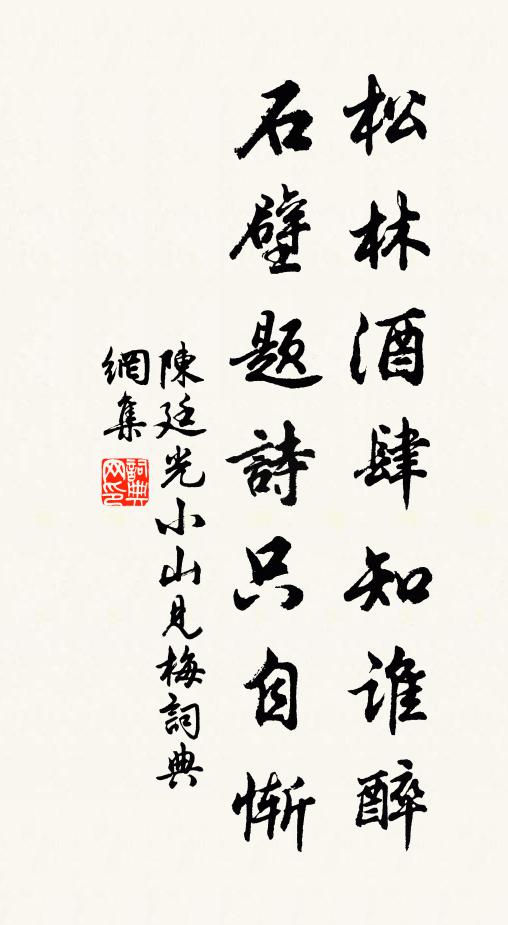 松林酒肆知谁醉
石壁題詩只自慚
陳廷光小山見梅詞典
網集
詞典
网印